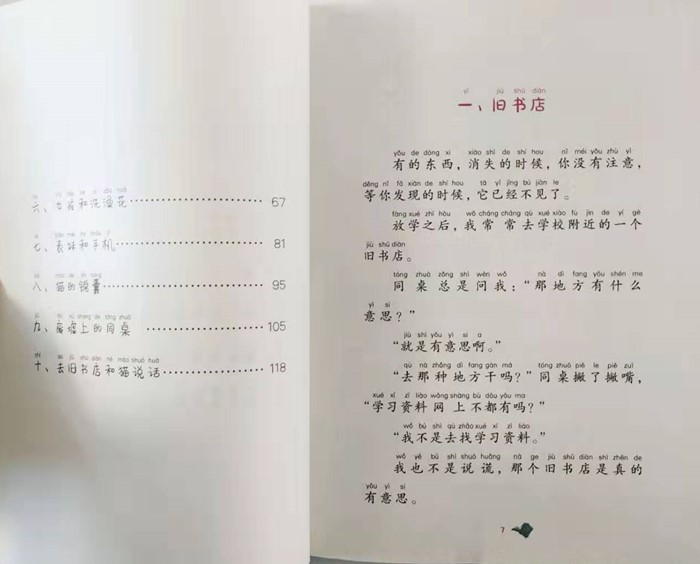 六、 和 花 67
七、表妹和手机 81
八、猫的锦囊 95
九、废墟上的同桌 105
十、去旧书店和猫说话 118
yī jiù shū diàn
一、旧书店
yǒu de dōng xi xiāo shī de shí hou nǐ méi yǒu zhù yì
有的东西，消失的时候，你没有注意，
děng nǐ fā xiàn de shí hou tā yǐ jīng bú jiàn le
等你发现的时候，它已经不见了。
fàng xué zhī hòu wǒ cháng cháng qù xué xiào fù jìn de yí gè
放学之后，我常常去学校附近的一个
jiù shū diàn
旧书店。
tóng zhuō zǒng shì wèn wǒ nà dì fang yǒu shén me
同桌总是问我：“那地方有什么
yì si
意思？”
jiù shì yǒu yì si a
“就是有意思啊。”
qù nà zhǒng dì fang gàn má tóng zhuō piě le piě zuǐ
“去那种地方干吗？”同桌撇了撇嘴，
xué xí zī liào wǎng shàng bù dōu yǒu ma
“学习资料网上不都有吗？”
wǒ bú shì qù zhǎo xué xí zī liào
“我不是去找学习资料。”
wǒ yě bú shì shuō huǎng nà ge jiù shū diàn shì zhēn de
我也不是说谎，那个旧书店是真的
yǒu yì si
有意思。
7